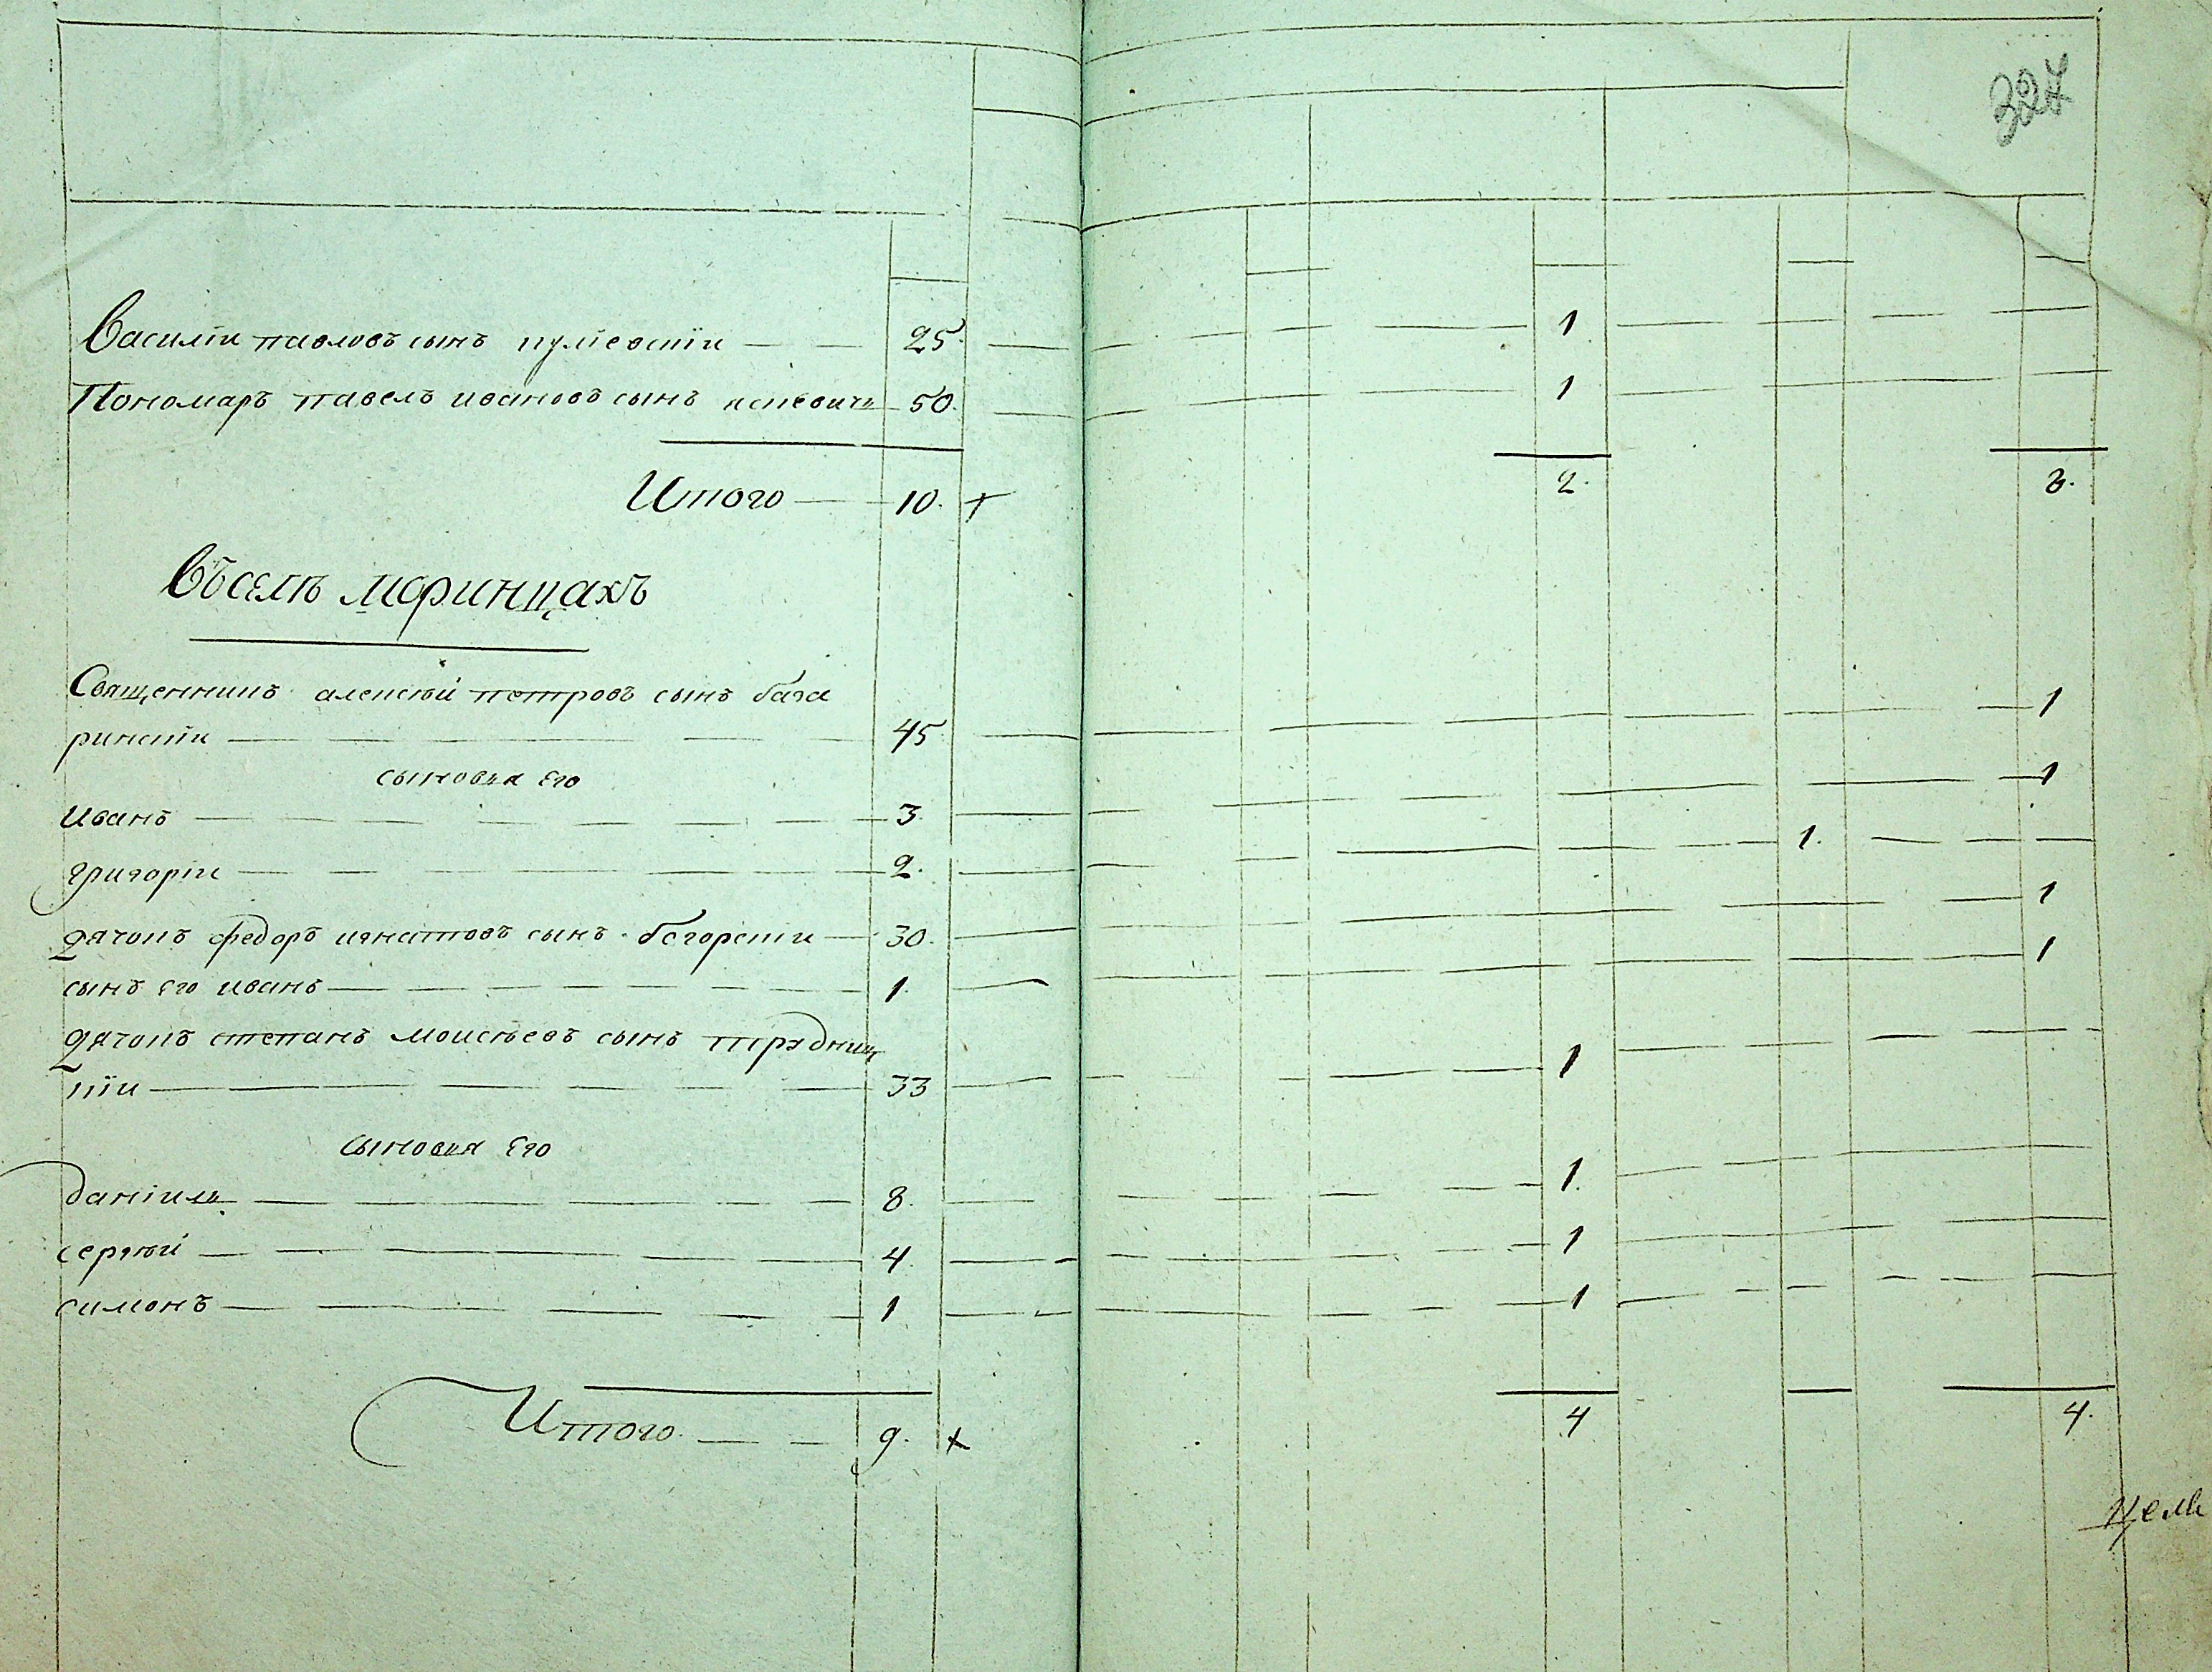 327
Василій павловъ сынъ — — 25. — 1
Пономаръ павелъ ивановъ сынъ — 50. — 1
Итого — 10. + 2. 3.
Въселѣ моринцахъ
Священникъ алексѣй петровъ сынъ бага
ринскій — 45 — 1
сыновья его
иванъ — 3. — 1
григорій — 2. — 1.
дячокъ федоръ игнатовъ сынъ — 30. — 1
сынъ его иванъ — 1. — 1
дячокъ степанъ моисѣевъ сынъ
кій — 33 — 1
сыновья его
даніилъ — 8. — 1.
сергѣй — 4. — 1
симонъ — 1 — 1
Итого — 9. + 4 4.